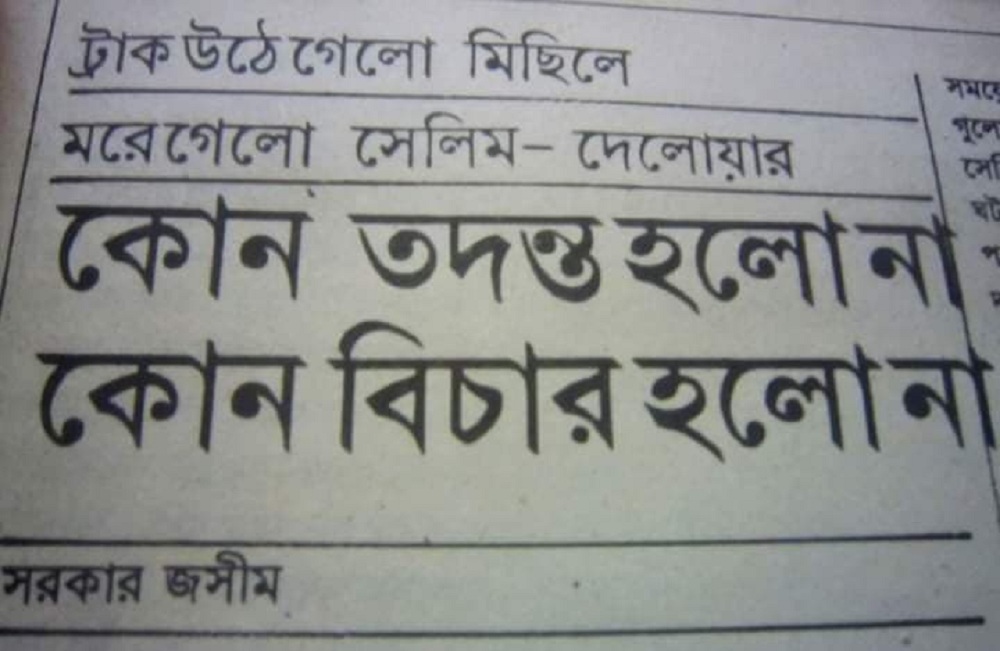 ট্রাক উঠে গেলো মিছিলে
মরে গেলো সেলিম- দেলোয়ার
কোন তদন্ত হলো না
কোন বিচার হলো না
সরকার জসীম